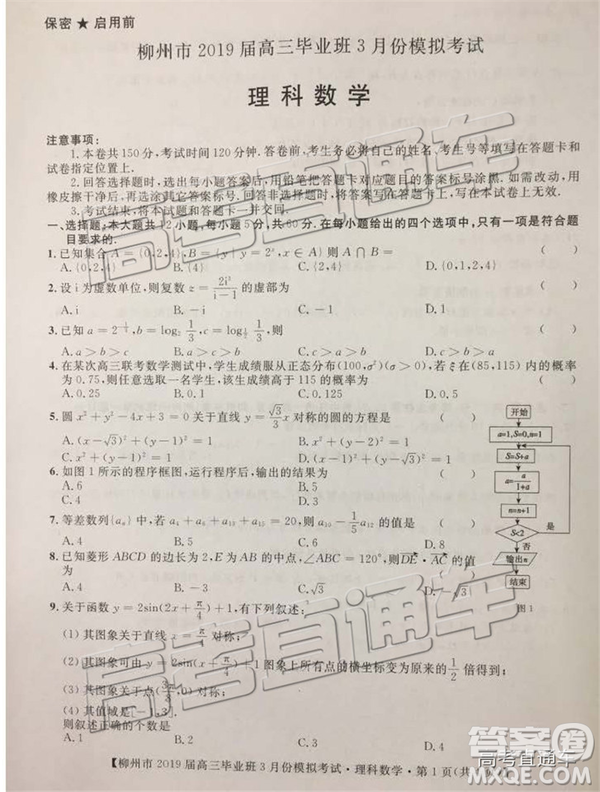 保密 ★ 启用前
柳州市 2019 届高三毕业班 3 月份模拟考试
理科数学
注意事项：
1.本卷共150分，考试时间120分钟．答卷前，考生务必将自己的姓名、考生号等填写在答题卡和
试卷指定位置上．
2.回答选择题时，选出每小题答案后，用铅笔把答题卡对应题目的答案标号涂黑．如需改动，用
橡皮擦干净后，再选涂其它答案标号．回答非选择题时，将答案写在答题卡上，写在本试卷上无效．
3.考试结束，将本试题和答题卡一并交回．
一、选择题：本大题共12小题，每小题5分，共60分．在每小题给出的四个选项中，只有一项是符合题
目要求的．
1.已知集合 A={0,2,4}，B={y|y=2^x，x∈A}，则 A∩B= （ ）
A.{0,2,4} B.{0,4} C.{2,4} D.{0,1,2,4}
2.设 i 为虚数单位，则复数 z=2i³/(i−1) 的虚部为 （ ）
A.i B.−i C.−1 D.1
B.b>a>c C.c>a>b D.c>b>a
4.在某次高三联考数学测试中，学生成绩服从正态分布(100,σ²)(σ>0)，若 ξ 在(85,115)内的概率
为 0.75，则任意选取一名学生，该生成绩高于 115 的概率为 （ ）
A.0.25 B.0.1 C.0.125 D.0.5
5.圆 x²+y²−4x+3=0 关于直线 y=√3/3 x 对称的圆的方程是 （ ）
A.(x−√3)²+(y−1)²=1 B.x²+(y−2)²=1
C.x²+(y−1)²=1 D.(x−1)²+(y−√3)²=1
6.如图 1 所示的程序框图，运行程序后，输出的结果为 （ ）
A.6 B.5
C.4 D.3
7.等差数列{aₙ}中，
的值是 （ ）
A.4 B.5 C.6 D.8
8.已知菱形 ABCD 的边长为 2，E 为 AB 的中点，∠ABC=120°，则DE·AC的值为
（ ）
A.4 B.−3 C.√3
9.关于函数 y=2sin(2x+π/4)+1，有下列叙述：
(1) 其图象关于直线 x=π/4 对称；
(2) 其图象可由 y=2sin(x+π/4)+1 图象上所有点的横坐标变为原来的 1/2 倍得到；
(3) 其图象关于点
对称；
(4) 其值域是[−1,3]．
则叙述正确的个数是 （ ）
A.1 B.2 C.3 D.4
开始
a=1,S=0,n=1
S=S+a
a=a/(1+a)
n=n+1
S<2
是
否
输出n
结束
图 1
【柳州市 2019 届高三毕业班 3 月份模拟考试·理科数学·第 1 页(共
高考直通车
高考直通车
高考直通车
答案圈